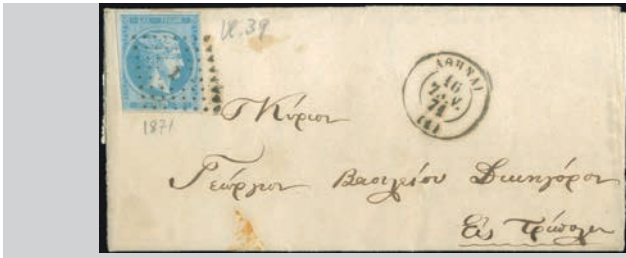 Vl. 39
1871
ΑΘΗΝΑΙ
16
ΙΑΝ.
71
Κύριον
Γεώργιον Βασιλείου Δικηγόρον
Εἰς Τρίπολιν